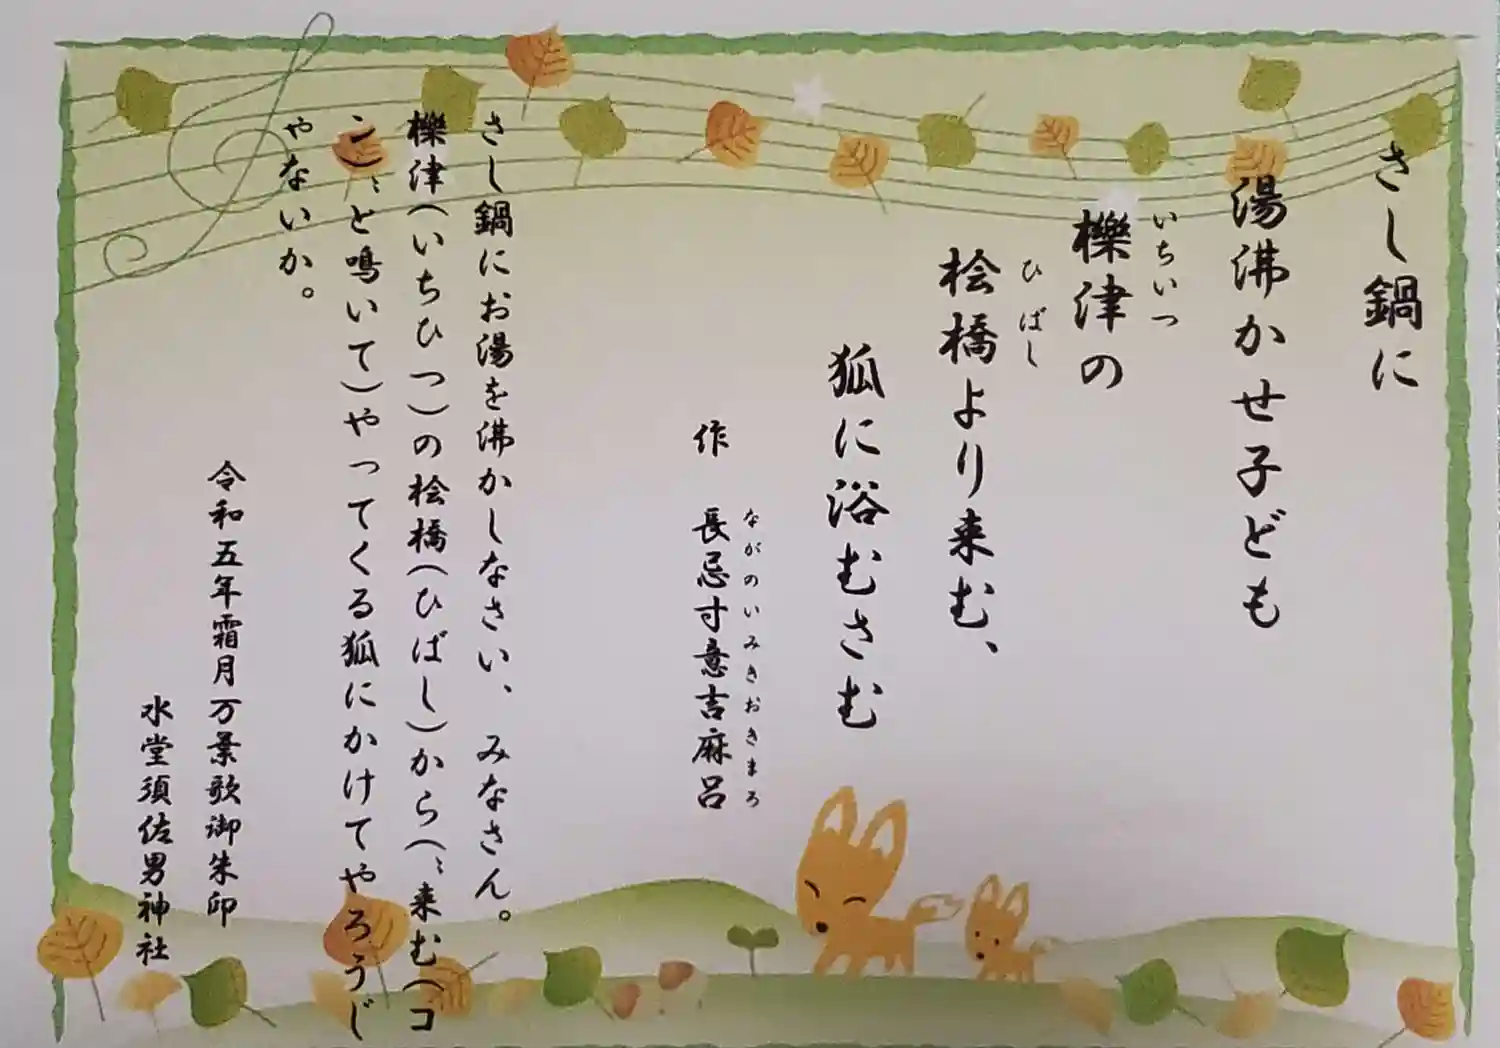 さし鍋に
湯沸かせ子ども
いちいつ
櫟津の
ひばし
桧橋より来む、
狐に浴むさむ
作　長忌寸意吉麻呂
ながのいみきおきまろ
さし鍋にお湯を沸かしなさい、みなさん。
櫟津(いちひつ)の桧橋(ひばし)から(〝来む(コ
ン)〟と鳴いて)やってくる狐にかけてやろうじ
ゃないか。
令和五年霜月万葉歌御朱印
水堂須佐男神社